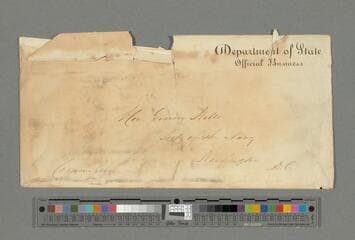 Department of State
Official Business
Hon Gideon Welles
Sec of the Navy
Washington
D.C.